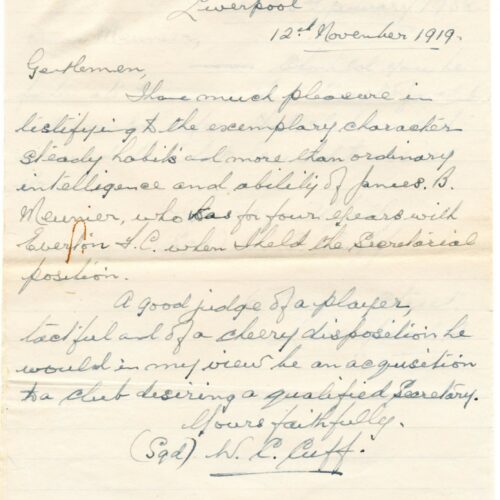 Liverpool
12th November 1919.
Gentlemen,
I have much pleasure in
testifying to the exemplary character
steady habits and more than ordinary
intelligence and ability of James. B.
Meunier, who was for four years with
Everton F.C. when I held the Secretarial
position.
A good judge of a player,
tactful and of a cheery disposition he
would in my view be an acquisition
to a club desiring a qualified Secretary.
Yours faithfully.
(Sgd). W. C. Cuff.